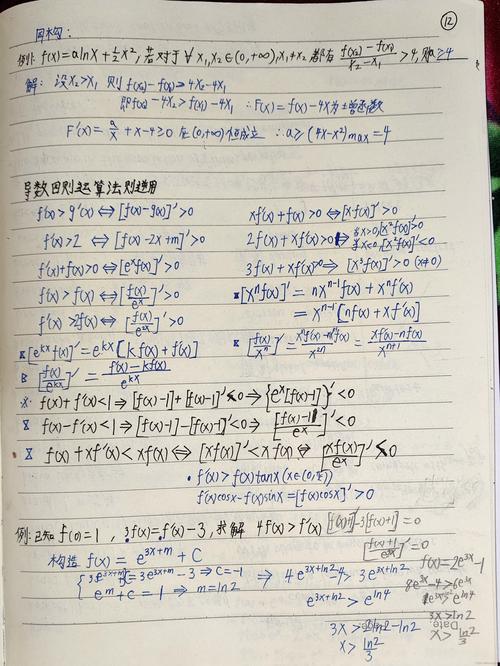 ⑫
同构:
例1: f(x)=alnx+½x², 若对于∀x₁,x₂∈(0,+∞),x₁≠x₂ 都有 (f(x₂)-f(x₁))/(x₂-x₁) >4, 则a≥4
解: 设x₂>x₁ 则 f(x₂)-f(x₁)>4x₂-4x₁
即f(x₂)-4x₂>f(x₁)-4x₁ ∴F(x)=f(x)-4x为增函数
F'(x)=a/x+x-4≥0 在(0,+∞)恒成立 ∴a≥(4x-x²)max=4
导数四则运算法则逆用
f'(x)>g'(x)⇔[f(x)-g(x)]'>0 xf'(x)+f(x)>0⇔[xf(x)]'>0
f'(x)>2 ⇔[f(x)-2x+m]'>0 2f(x)+xf'(x)>0 若x>0,[x²f(x)]'>0
若x<0,[x²f(x)]'<0
f'(x)+f(x)>0⇔[eˣf(x)]'>0 3f(x)+xf'(x)>0⇒[x³f(x)]'>0 (x≠0)
f'(x)>f(x)⇔[f(x)/eˣ]'>0 [xⁿf(x)]'=nxⁿ⁻¹f(x)+xⁿf'(x)
f'(x)>2f(x)⇔[f(x)/e²ˣ]'>0 =xⁿ⁻¹[nf(x)+xf'(x)]
[eᵏˣf(x)]'=eᵏˣ[kf(x)+f'(x)] [f(x)/xⁿ]'=(xⁿf'(x)-nxⁿ⁻¹f(x))/x²ⁿ=(xf'(x)-nf(x))/xⁿ⁺¹
[f(x)/eᵏˣ]'=(f'(x)-kf(x))/eᵏˣ
※ f(x)+f'(x)<1⇒[f(x)-1]+[f(x)-1]'<0⇒{eˣ[f(x)-1]}'<0
f(x)-f'(x)<1⇒[f(x)-1]-[f(x)-1]'<0⇒[(f(x)-1)/eˣ]'<0
f(x)+xf'(x)<xf(x)⇔[xf(x)]'<xf(x)⇔[xf(x)/eˣ]'<0
• f'(x)>f(x)tanx(x∈(0,π/2))
f'(x)cosx-f(x)sinx=[f(x)cosx]'>0
例: 已知f(0)=1, 3f(x)=f'(x)-3, 求解 4f(x)>f'(x) [f(x)+1]'-3[f(x)+1]=0
构造 f(x)=e^(3x+m)+C [(f(x)+1)/e³ˣ]'=0
f(x)=2e³ˣ-1
=3e^(3x+m)-3⇒C=-1 ⇒ 4e^(3x+ln2)-4>3e^(3x+ln2) 8e³ˣ-4>6e³ˣ
eᵐ+C=1⇒m=ln2 e^(3x+ln2)>e^(ln4)
3x>ln2
3x>2ln2-ln2 x>ln2/3
x>ln2/3